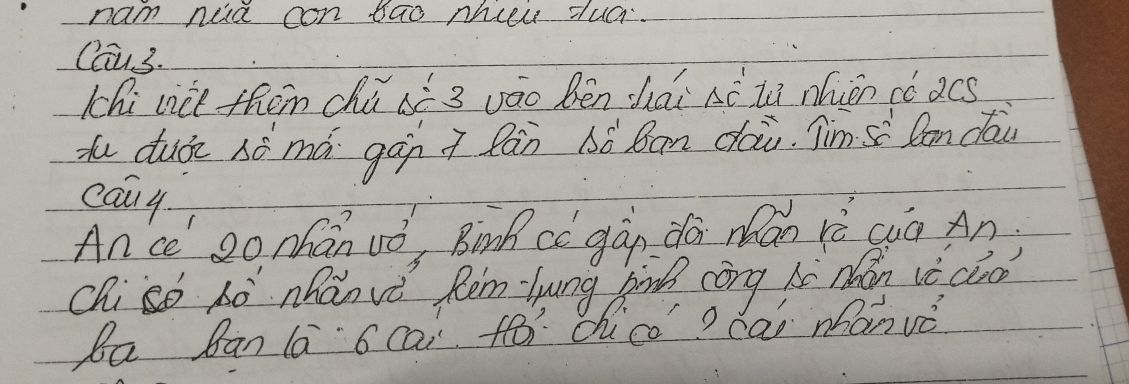 năm nữa con bao nhiêu tuổi.
Câu 3.
Khi viết thêm chữ số 3 vào bên trái số tự nhiên có 2cs
ta được số mới gấp 7 lần số ban đầu. Tìm số ban đầu
câu 4
An có 20 nhãn vở, Bình có gấp đôi nhãn vở của An.
Chi có số nhãn vở kém trung bình cộng số nhãn vở của
ba bạn là 6 cái. Hỏi chi có ? cái nhãn vở